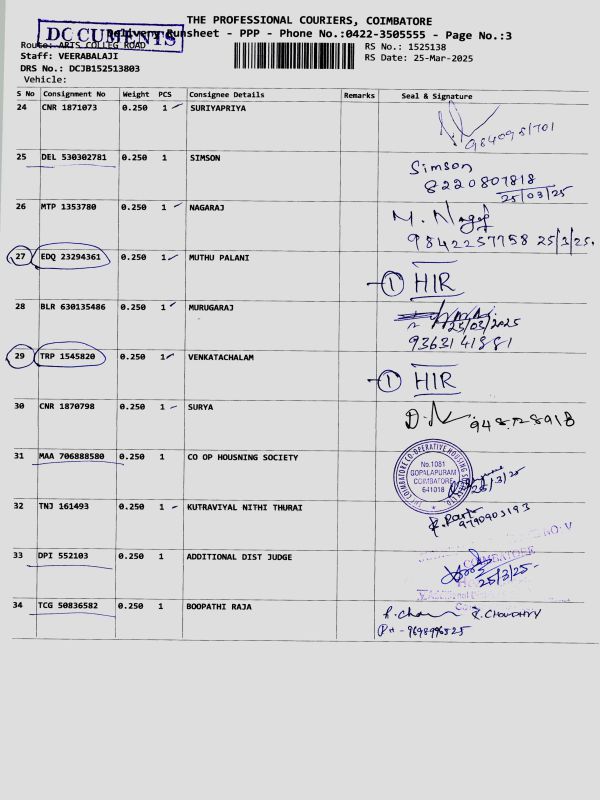 THE PROFESSIONAL COURIERS, COIMBATORE
DOCUMENTS
Delivery Runsheet - PPP - Phone No.:0422-3505555 - Page No.:3
Route: ARTS COLLEG ROAD
RS No.: 1525138
Staff: VEERABALAJI
RS Date: 25-Mar-2025
DRS No.: DCJB152513803
Vehicle:
S No Consignment No Weight PCS Consignee Details Remarks Seal & Signature
24 CNR 1871073 0.250 1 SURIYAPRIYA
25 DEL 530302781 0.250 1 SIMSON Simson
8220807818
25/03/25
26 MTP 1353780 0.250 1 NAGARAJ
9842257758 25/3/25.
27 EDQ 23294361 0.250 1 MUTHU PALANI
1 HIR
28 BLR 630135486 0.250 1 MURUGARAJ
25/03/2025
9363141881
29 TRP 1545820 0.250 1 VENKATACHALAM
1 HIR
30 CNR 1870798 0.250 1 SURYA
31 MAA 706888580 0.250 1 CO OP HOUSNING SOCIETY
THE COIMBATORE CO-OPERATIVE HOUSING
No.1081
GOPALAPURAM
COIMBATORE
641018
32 TNJ 161493 0.250 1 KUTRAVIYAL NITHI THURAI
9790903193
33 DPI 552103 0.250 1 ADDITIONAL DIST JUDGE
COIMBATORE
25/3/25-
34 TCG 50836582 0.250 1 BOOPATHI RAJA
R. CHOUDHRY